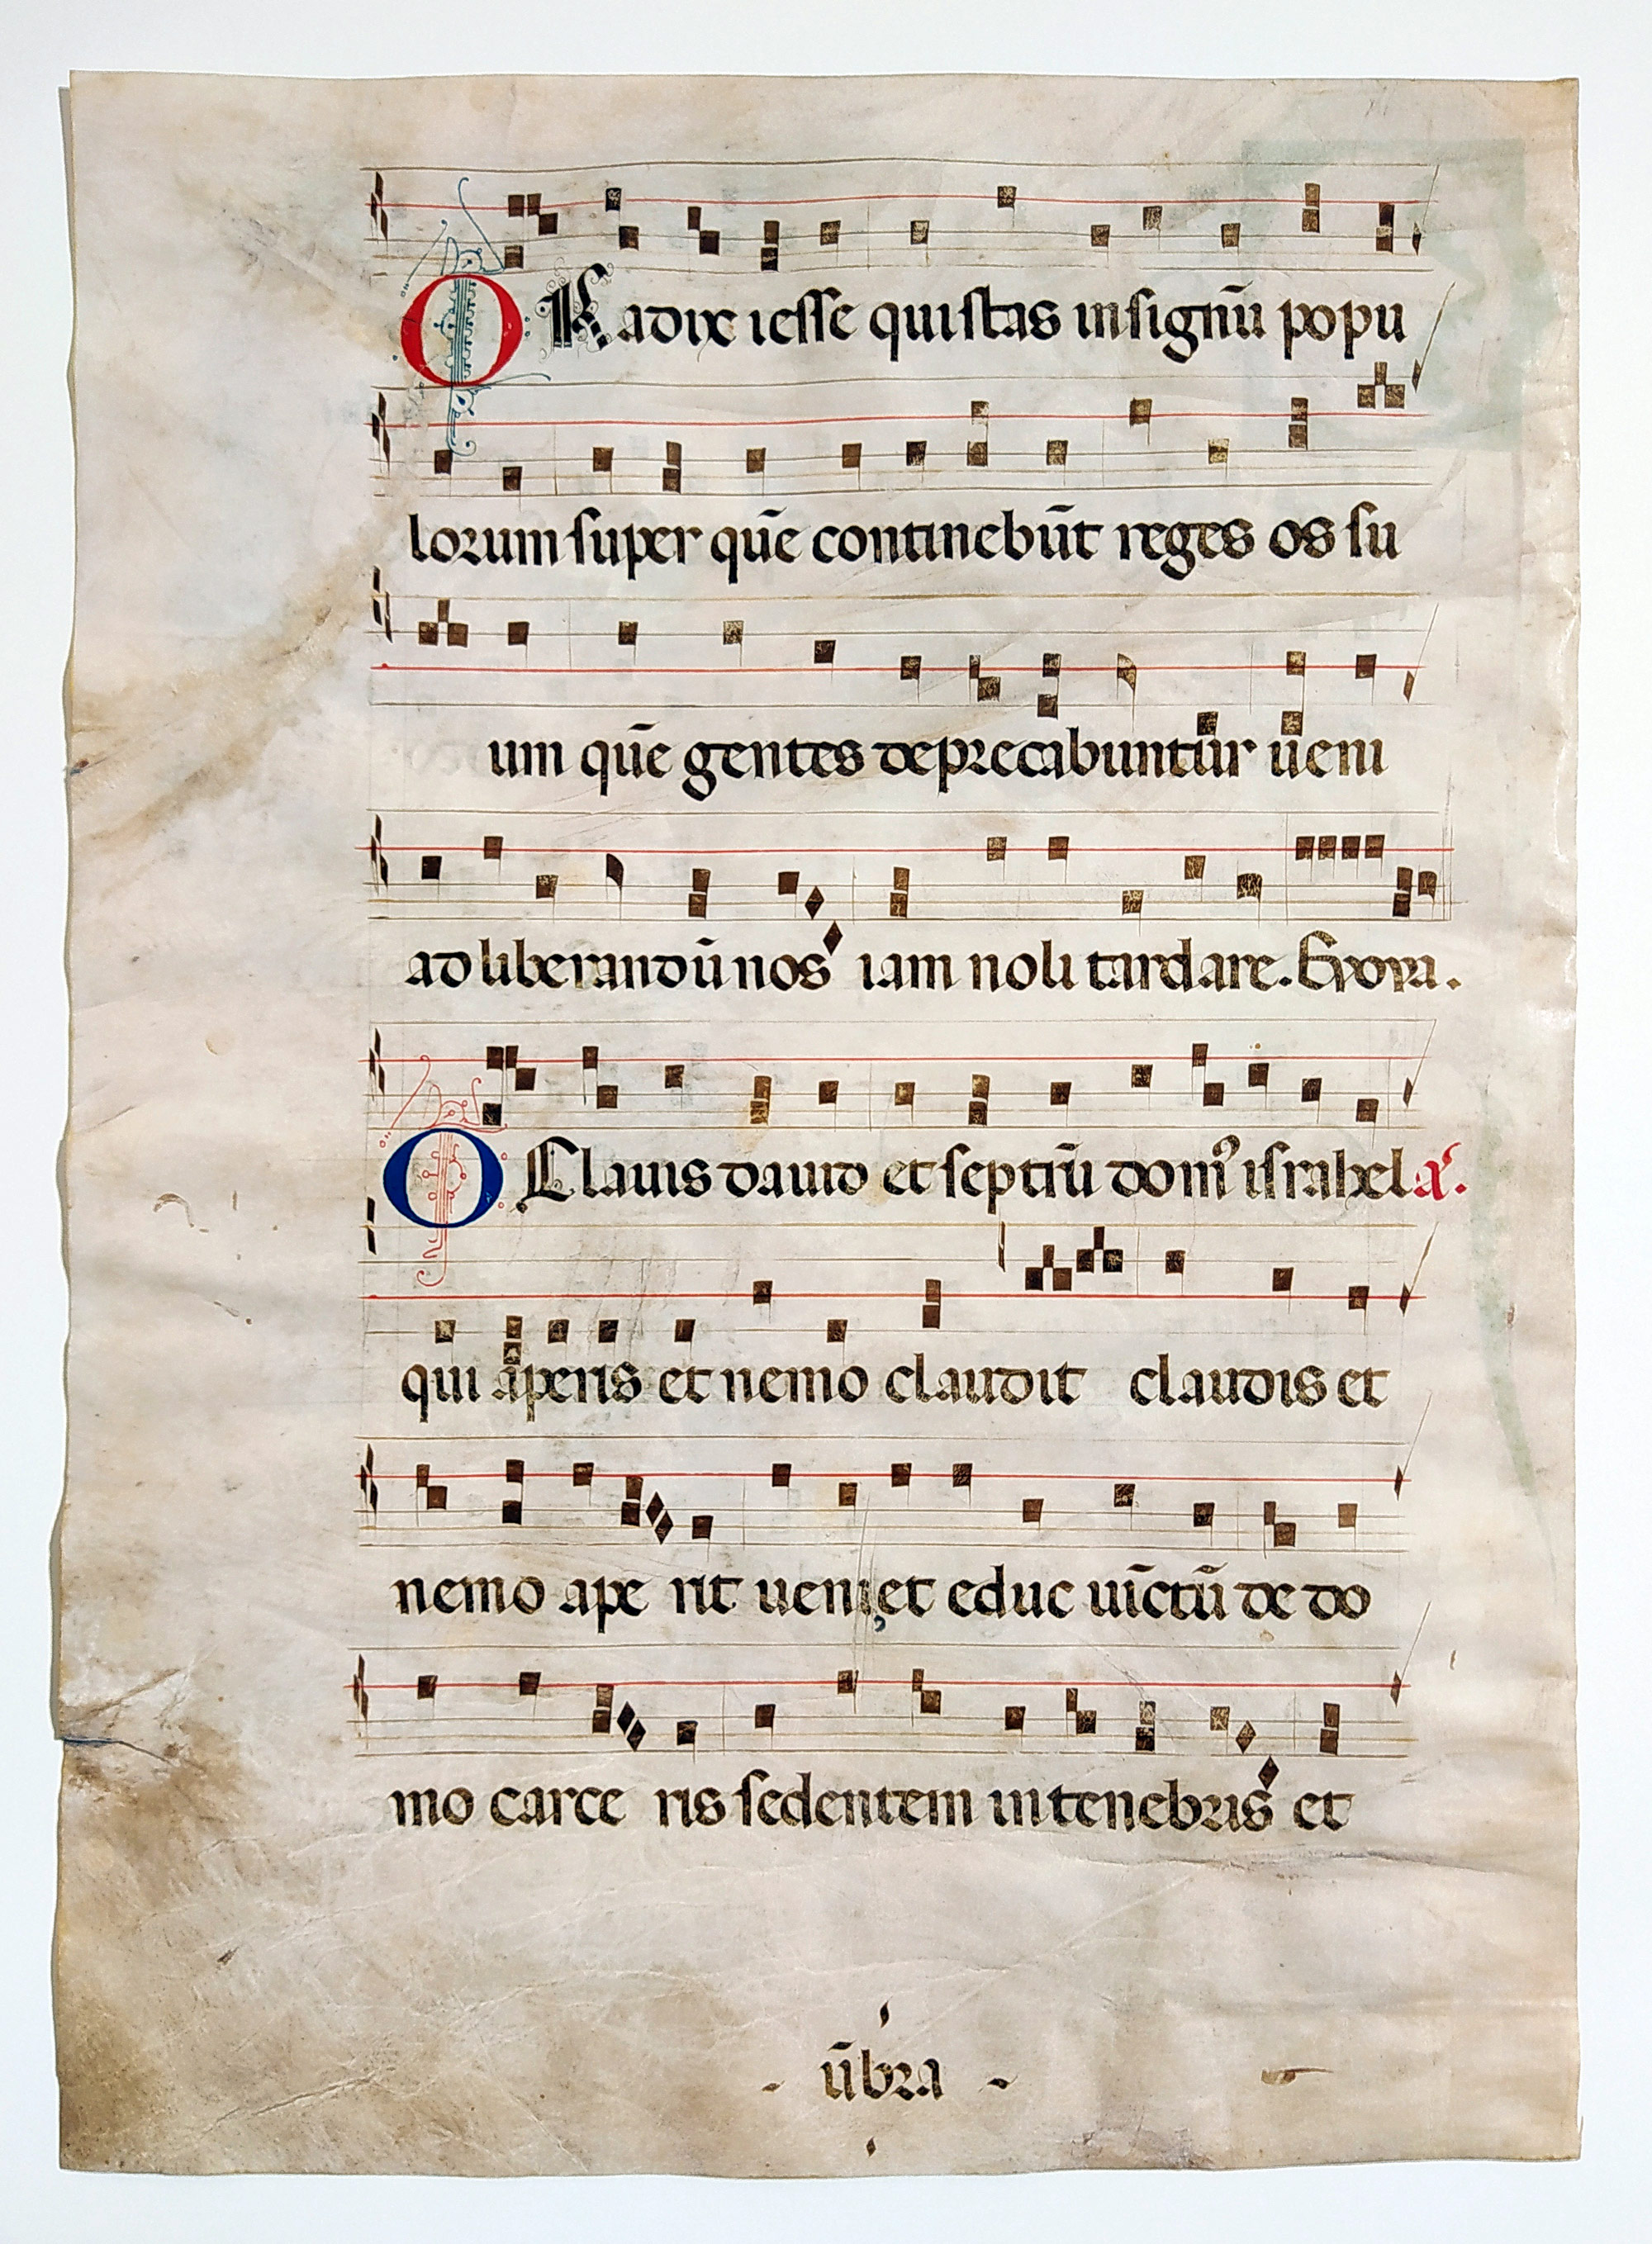 O Radix iesse qui stas in signū popu
lorum super quē continebūt reges os su
um quē gentes deprecabuntur ueni
ad liberandū nos iam noli tardare. Evovа.
O Clauis dauid et septrū domꝰ israhel a͛.
qui aperis et nemo claudit claudis et
nemo ape rit ueni et educ uīctū de do
mo carce ris sedentem in tenebris et
ūbra